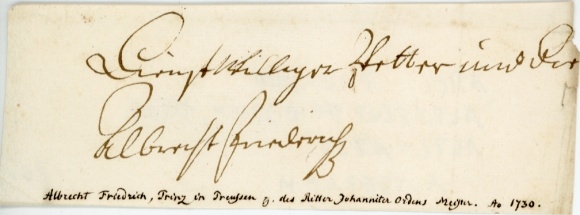 Dienst Williger Vetter und Die
Albrecht Friederich
Albrecht Friedrich, Prinz in Preussen u. des Ritter Johanniter Ordens Meister. Ao 1730.